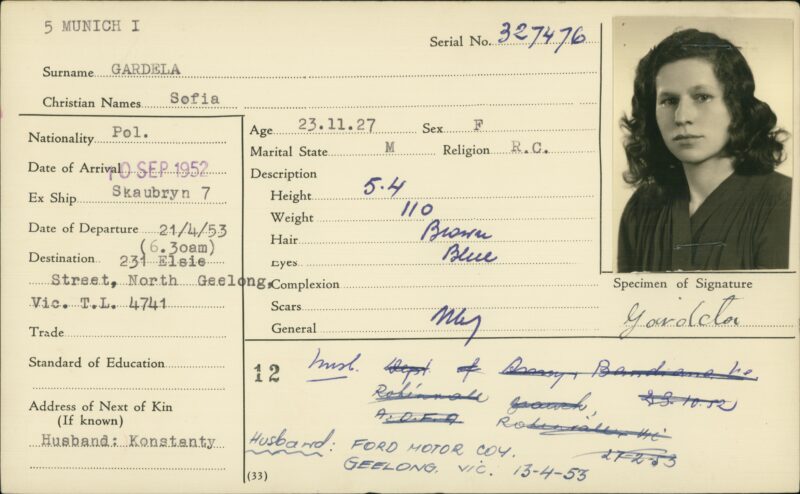 5 MUNICH I
Serial No. 327476
Surname GARDELA
Christian Names Sofia
Nationality Pol.
Date of Arrival 10 SEP 1952
Ex Ship Skaubryn 7
Date of Departure 21/4/53
(6.30am)
Destination 231 Elsie
Street, North Geelong,
Vic. T.L. 4741
Trade
Standard of Education
Address of Next of Kin
(If known)
Husband: Konstanty
Age 23.11.27 Sex F
Marital State M Religion R.C.
Description
Height 5.4
Weight 110
Hair Brown
Eyes Blue
Complexion
Scars
General
Specimen of Signature
Gardela
12 Husb. Dept of Army, Bandiana Vic
23.10.52
A.O.F.A
27-2-53
Husband: FORD MOTOR COY.
GEELONG. VIC. 13-4-53
(33)